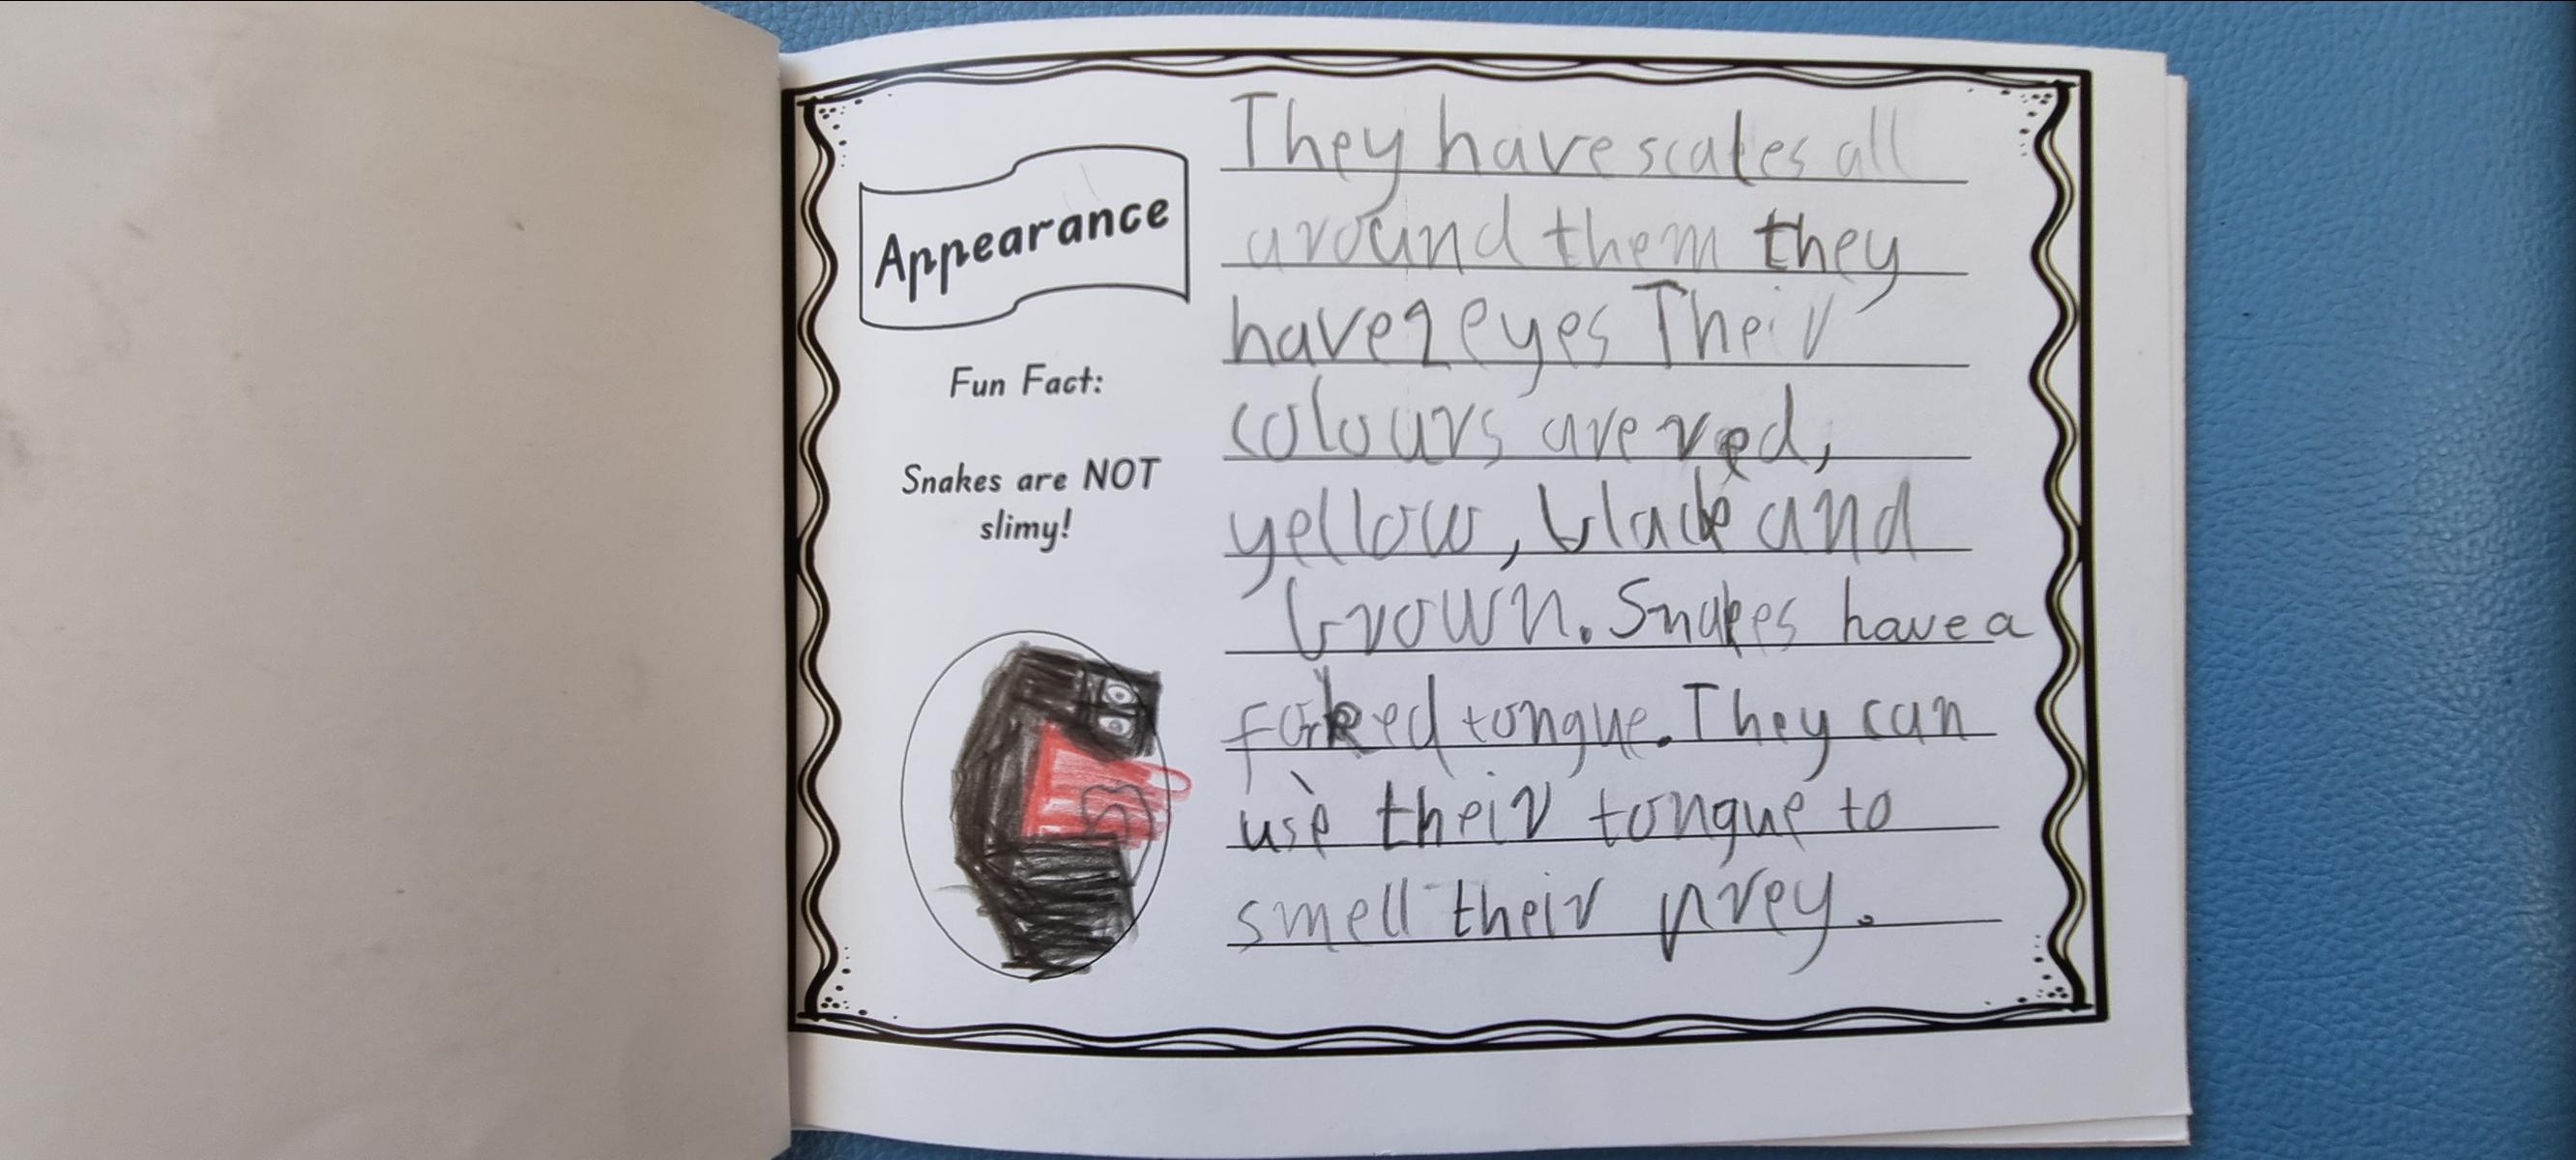 Appearance
Fun Fact:
Snakes are NOT
slimy!
They have scales all
around them they
have 2 eyes Their
colours are red,
yellow, black and
brown. Snakes have a
forked tongue. They can
use their tongue to
smell their prey.